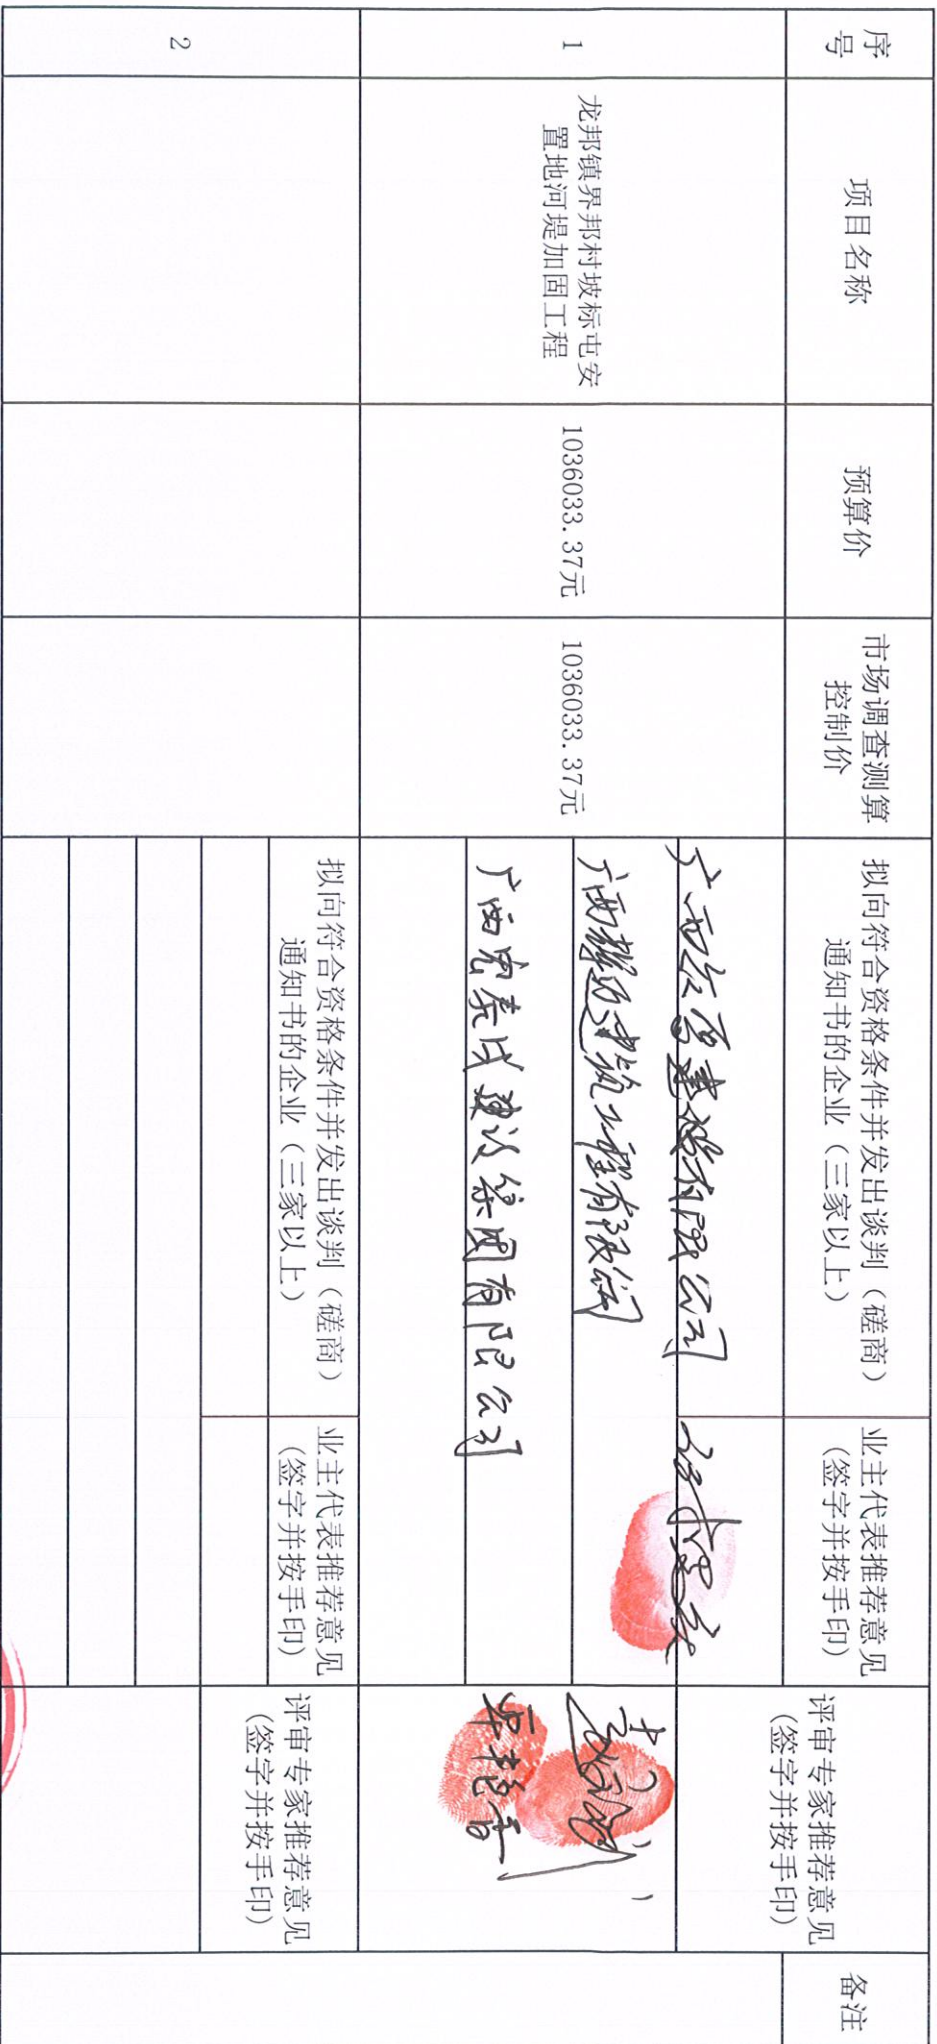 序
号
项目名称
预算价
市场调查测算
控制价
拟向符合资格条件并发出谈判（磋商）
通知书的企业（三家以上）
业主代表推荐意见
（签字并按手印）
评审专家推荐意见
（签字并按手印）
备注
1
龙邦镇界邦村坡标屯安
置地河堤加固工程
1036033.37元
1036033.37元
建筑工程有限公司
广西宏泰成建设集团有限公司
2
拟向符合资格条件并发出谈判（磋商）
通知书的企业（三家以上）
业主代表推荐意见
（签字并按手印）
评审专家推荐意见
（签字并按手印）